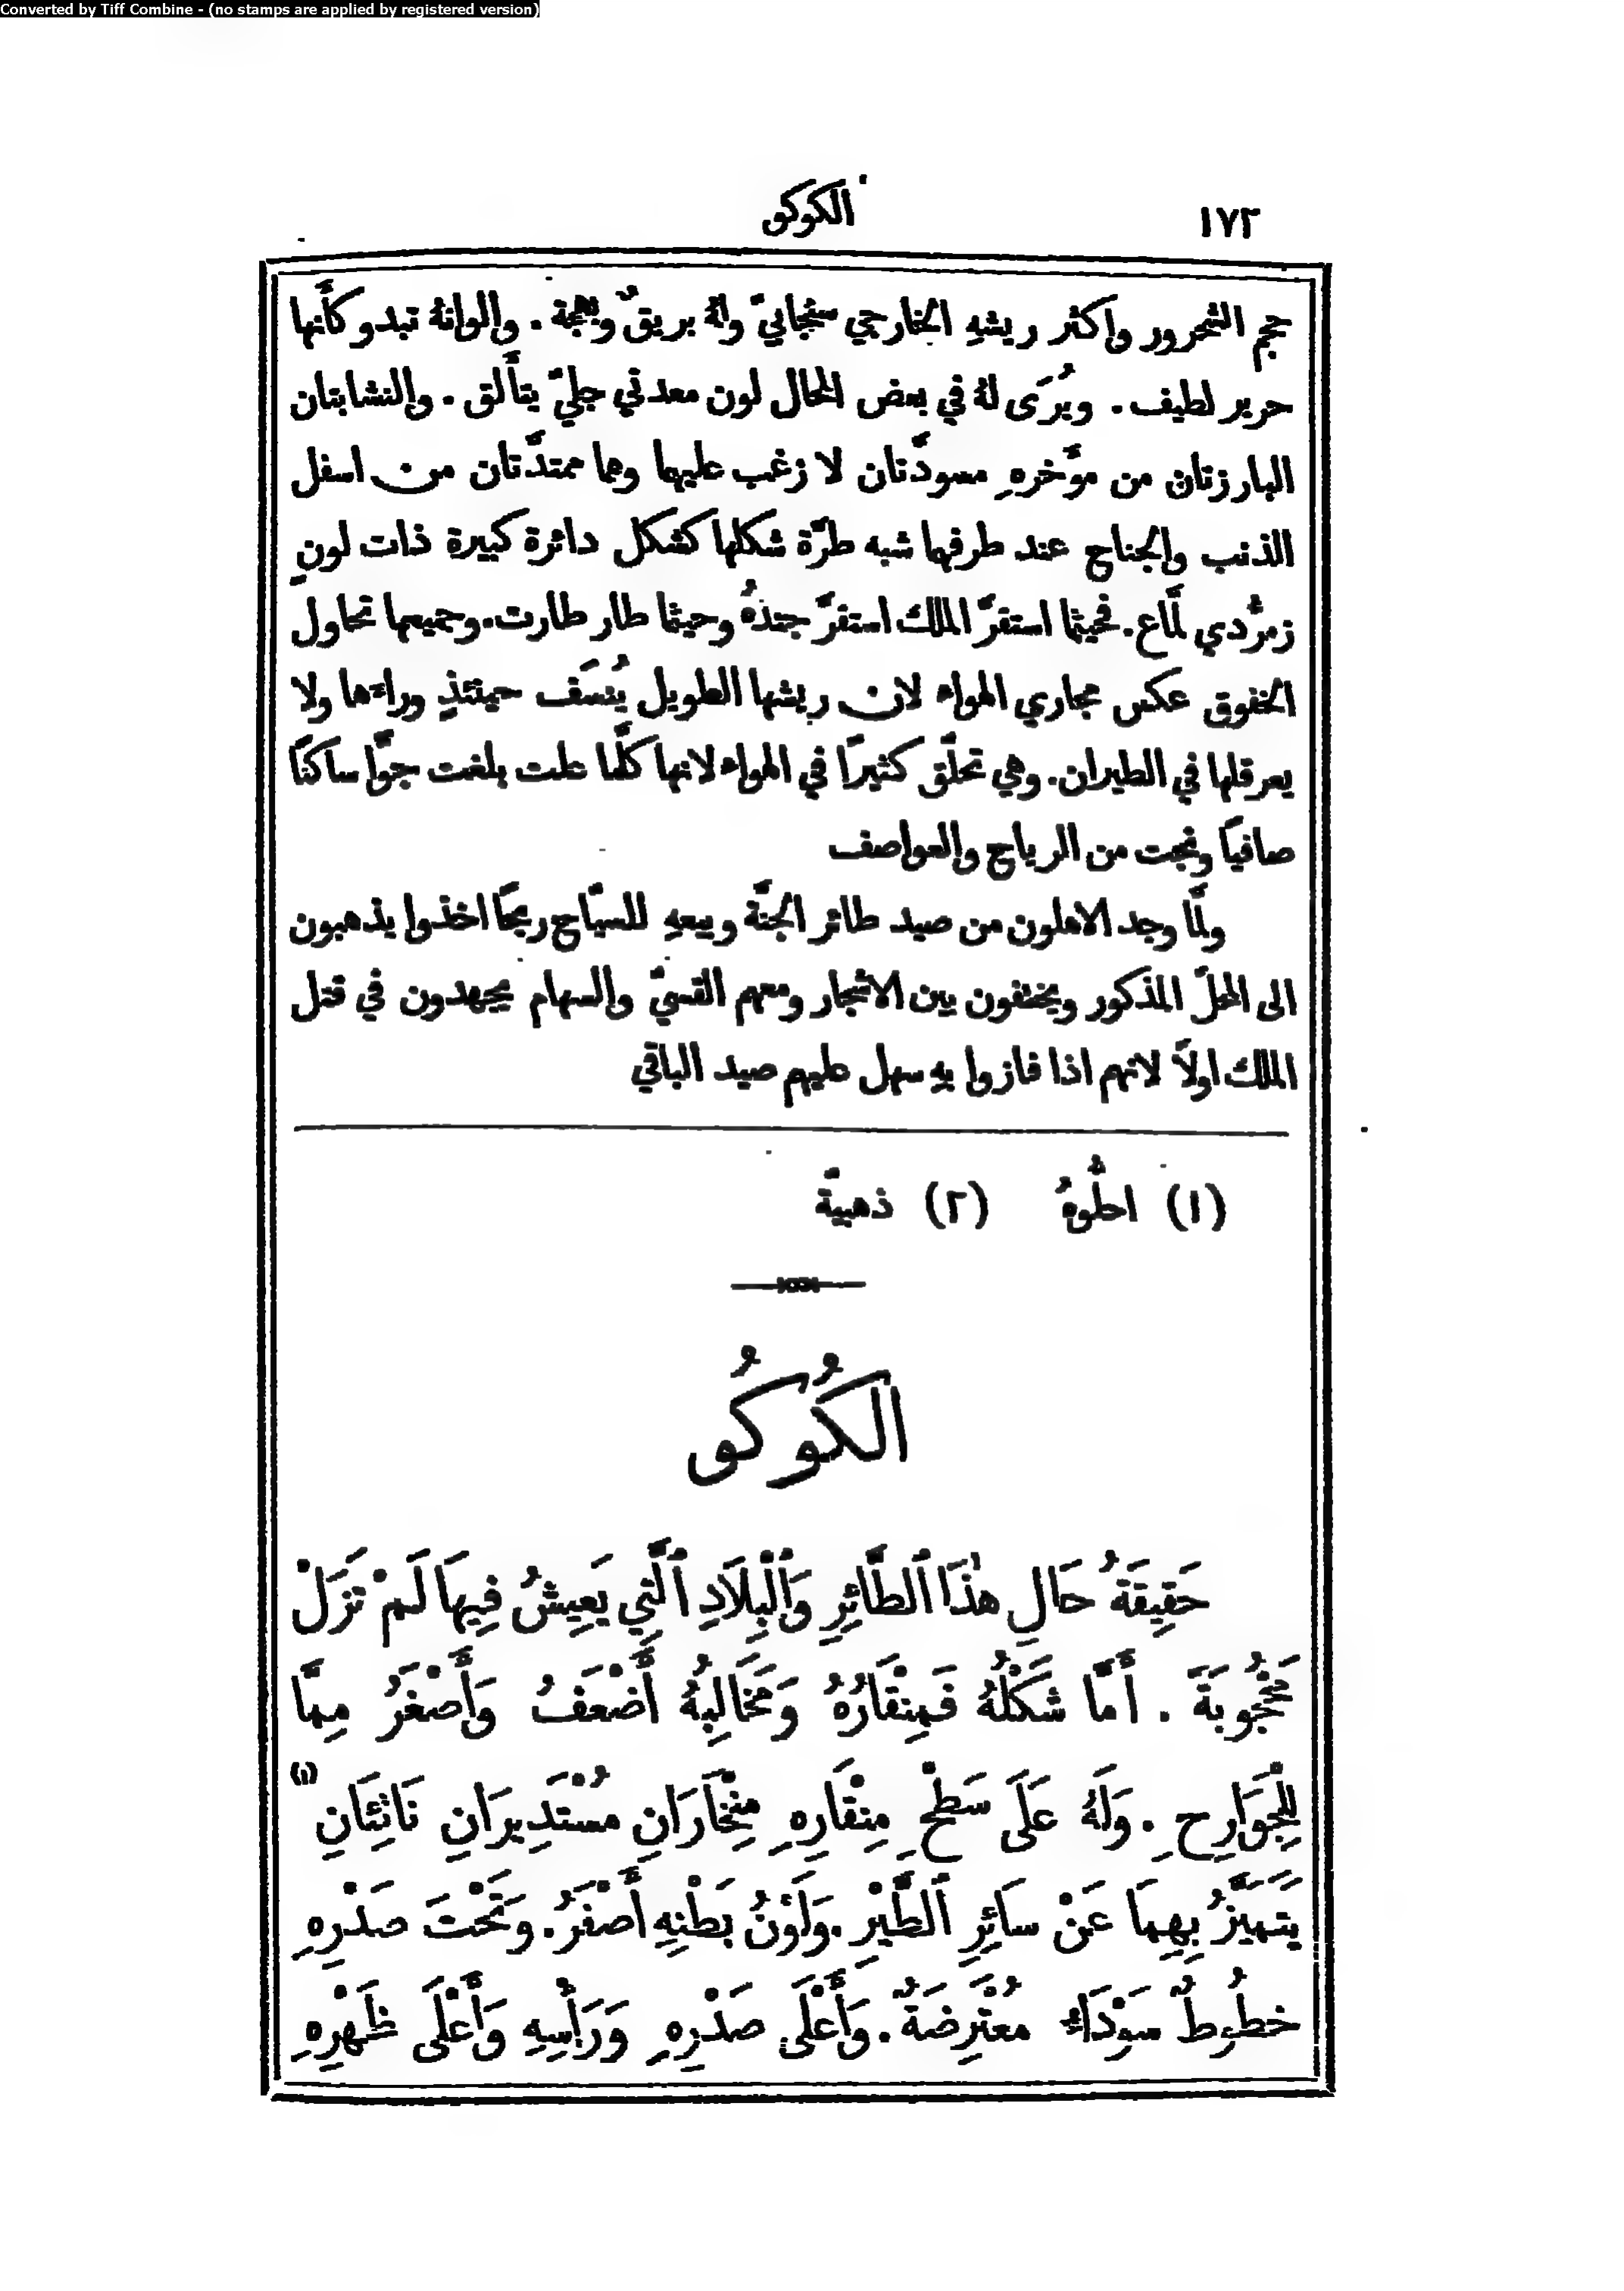 Converted by Tiff Combine - (no stamps are applied by registered version)
١٧٢ الكوكو
حجم الشحرور واكثر ريشهِ الخارجي سنجابيّ ولهُ بريقٌ وبهجة . والوانهُ تبدو كأَنها
حرير لطيف . ويُرَى لهُ في بعض الحال لون معدني جليّ يتأَلق . والنشابتان
البارزتان من مؤَخرهِ مسودَّتان لا زغب عليها وهما ممتدَّتان من اسفل
الذنب والجناح عند طرفها شبه طرَّة شكلها كشكل دائرة كبيرة ذات لونٍ
زمرُّدي لمَّاع . فحيثما استقرَّ الملك استقرَّ جندهُ وحيثما طار طارت . وجميعها تحاول
الخفوق عكس مجاري الهواء لان ريشها الطويل يُنسَف حينئذٍ وراءَها ولا
يعرقلها في الطيران . وهي تحلّق كثيرًا في الهواء لانها كلَّما علت بلغت جوًّا ساكنًا
صافيًا ونجت من الرياح والعواصف
ولمَّا وجد الاهلون من صيد طائر الجنَّة وبيعهِ للسيّاح ربحًا اخذوا يذهبون
الى المحلّ المذكور ويختفون بين الاشجار ومعهم القسيّ والسهام يجهدون في قتل
الملك اولاً لانهم اذا فازوا بهِ سهل عليهم صيد الباقي
(١) احطُّوهُ (٢) ذهبيَّة
الكُوكُو
حَقِيقَةُ حَالِ هٰذَا ٱلطَّائِرِ وَٱلْبِلَادِ ٱلَّتِي يَعِيشُ فِيهَا لَمْ تَزَلْ
مَحْجُوبَةً . أَمَّا شَكْلُهُ فَمِنْقَارُهُ وَمَخَالِبُهُ أَضْعَفُ وَأَصْغَرُ مِمَّا
لِلْجَوَارِحِ . وَلَهُ عَلَى سَطْحِ مِنْقَارِهِ مِنْخَارَانِ مُسْتَدِيرَانِ نَاتِئَانِ (١)
يَتَمَيَّزُ بِهِمَا عَنْ سَائِرِ ٱلطَّيْرِ . وَلَوْنُ بَطْنِهِ أَصْفَرُ . وَتَحْتَ صَدْرِهِ
خُطُوطٌ سَوْدَاءُ مُعْتَرِضَةٌ . وَأَعْلَى صَدْرِهِ وَرَأْسِهِ وَأَعْلَى ظَهْرِهِ